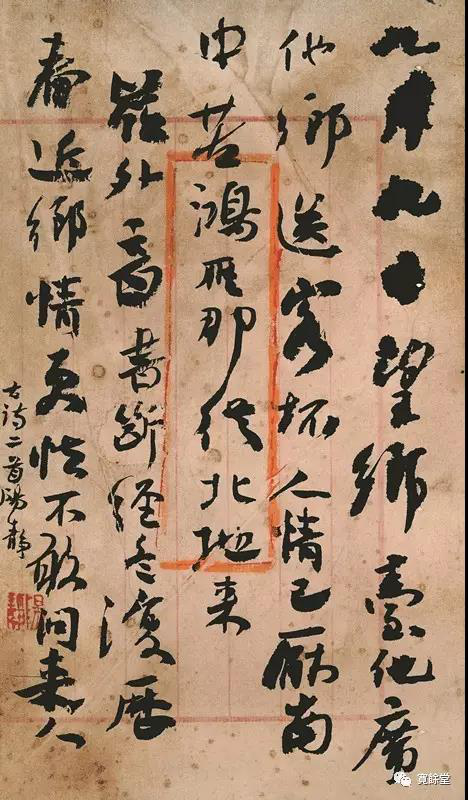 九月九日望鄉臺他席
他鄉送客杯人情已厭南
中苦鴻雁那從北地来
嶺外音書斷經冬復歷
春近鄉情更怯不敢問来人
古詩二首陽靜
寬餘堂